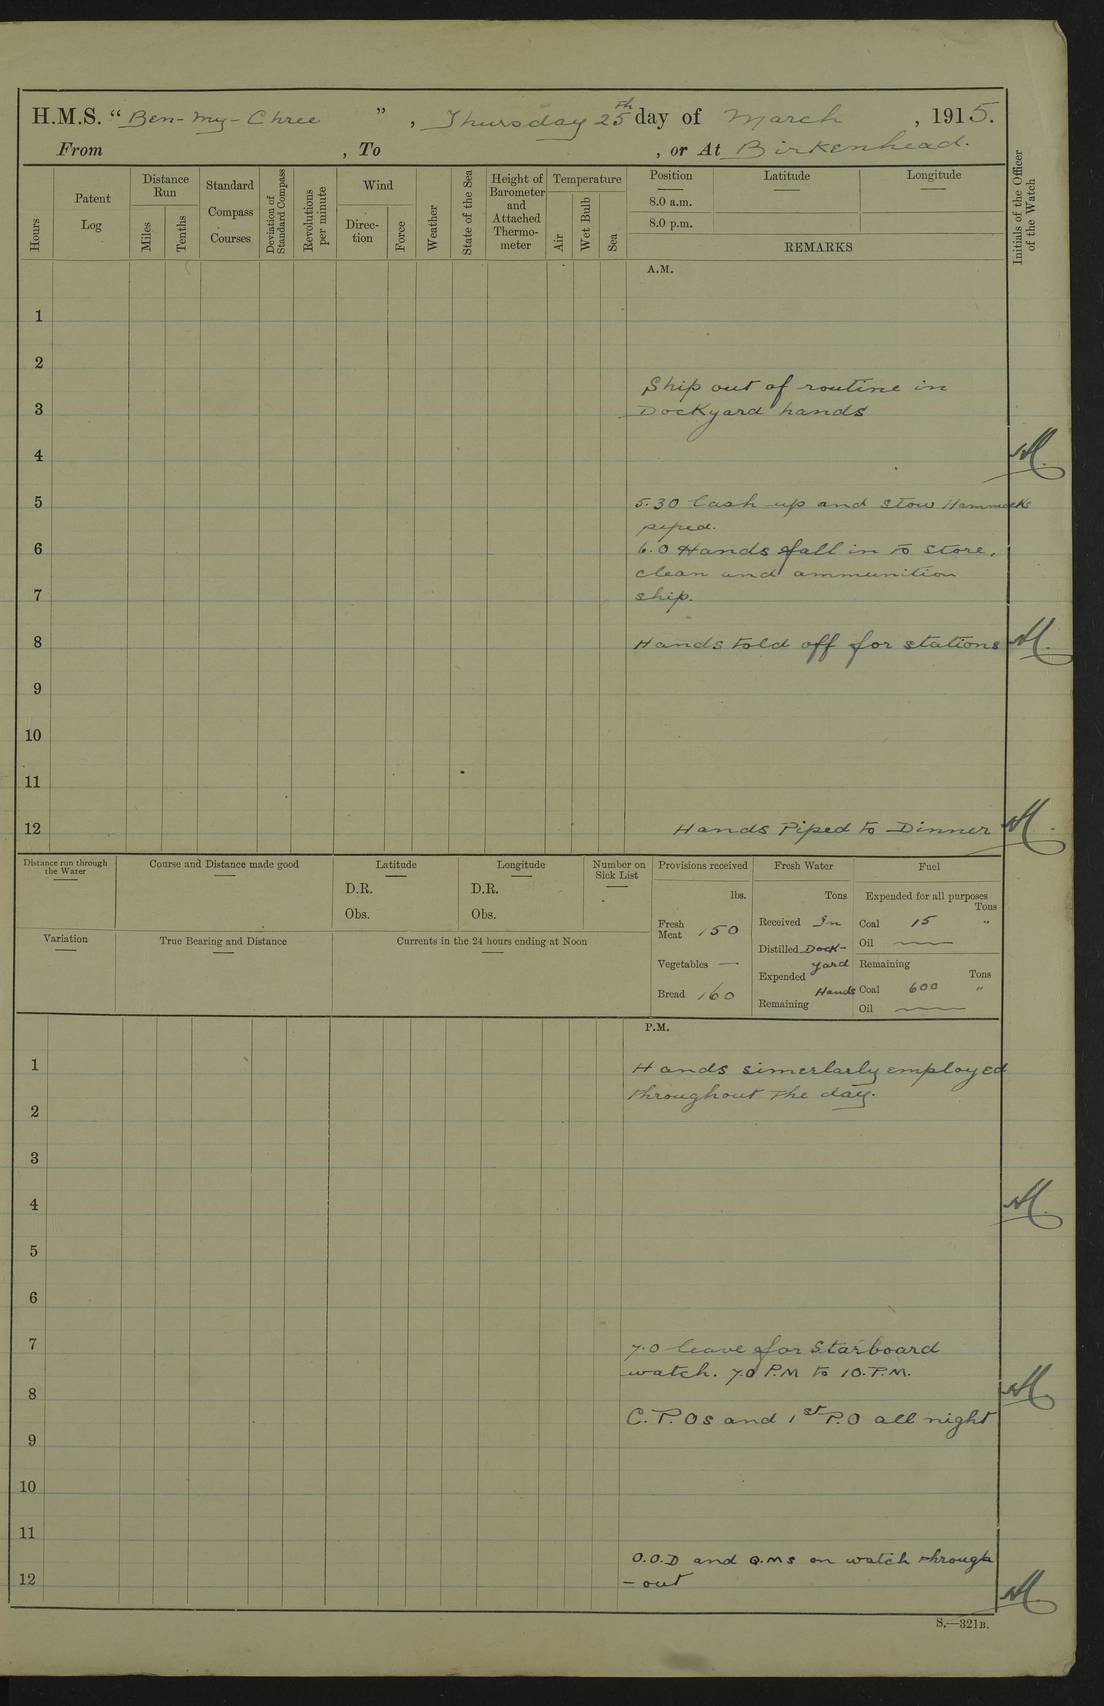 H.M.S. “Ben-my-Chree”, Thursday 25th day of March, 1915.
From , To , or At Birkenhead.
Hours
Patent Log
Distance Run
Miles
Tenths
Standard Compass Courses
Deviation of Standard Compass
Revolutions per minute
Wind
Direction
Force
Weather
State of the Sea
Height of Barometer and Attached Thermometer
Temperature
Air
Wet Bulb
Sea
Position
Latitude
Longitude
8.0 a.m.
8.0 p.m.
REMARKS
Initials of the Officer of the Watch
A.M.
1
2
Ship out of routine in
3 Dockyard hands
4
5 5.30 lash up and stow Hammocks
piped.
6 6.0 Hands fall in to store,
clean and ammunition
7 ship.
8 Hands told off for stations
9
10
11
12 Hands Piped to Dinner
Distance run through the Water
Course and Distance made good
Latitude
D.R.
Obs.
Longitude
D.R.
Obs.
Number on Sick List
Variation
True Bearing and Distance
Currents in the 24 hours ending at Noon
Provisions received
lbs.
Fresh Meat 150
Vegetables —
Bread 160
Fresh Water
Tons
Received In
Distilled Dock-
yard
Expended
Hands
Remaining
Fuel
Expended for all purposes
Tons
Coal 15 "
Oil —
Remaining
Tons
Coal 600 "
Oil —
P.M.
1 Hands simerlarly employed
throughout the day.
2
3
4
5
6
7 7.0 leave for Starboard
watch. 7.0 P.M to 10.P.M.
8
C.P.Os and 1st P.O all night
9
10
11
O.O.D and Q.MS on watch through
12 -out
S.—321B.